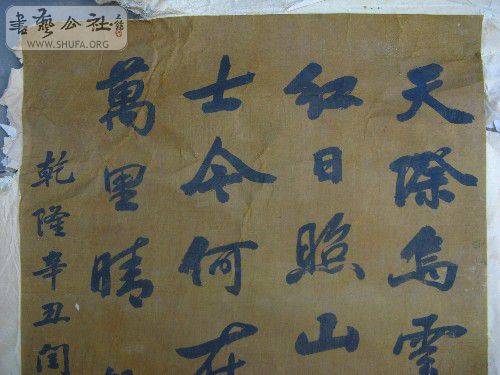 天際烏雲
紅日照山
士今何在
萬里晴
乾隆辛丑閏
書藝公社
WWW.SHUFA.ORG